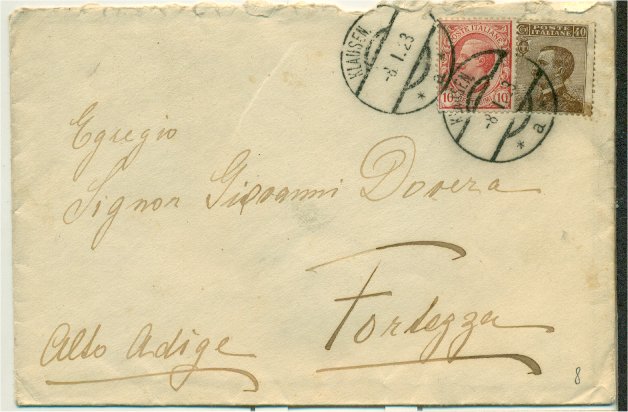 KLAUSEN
-8.1.23
* a
POSTE ITALIANE
10 10
POSTE ITALIANE 40
KLAUSEN
-8.1.23
* a
Egregio
Signor Giovanni Dovera
Fortezza
Alto Adige
8